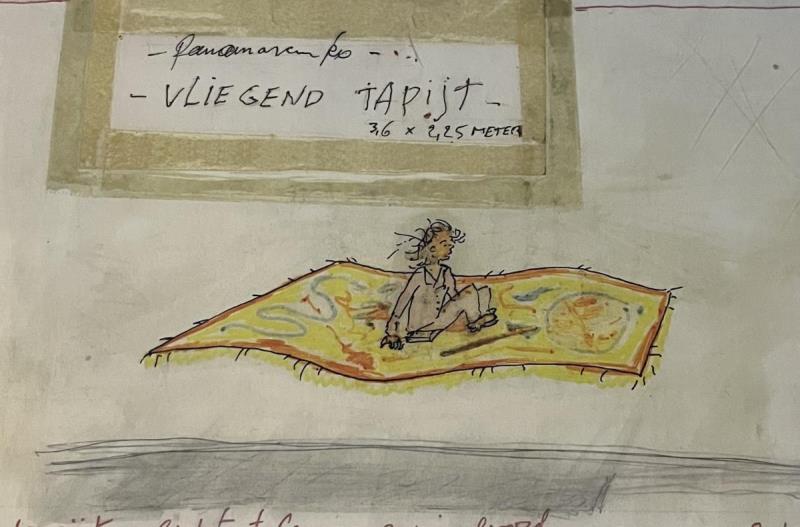 - Panamarenko - ...
- VLIEGEND TAPIJT -
3,6 x 2,25 METER